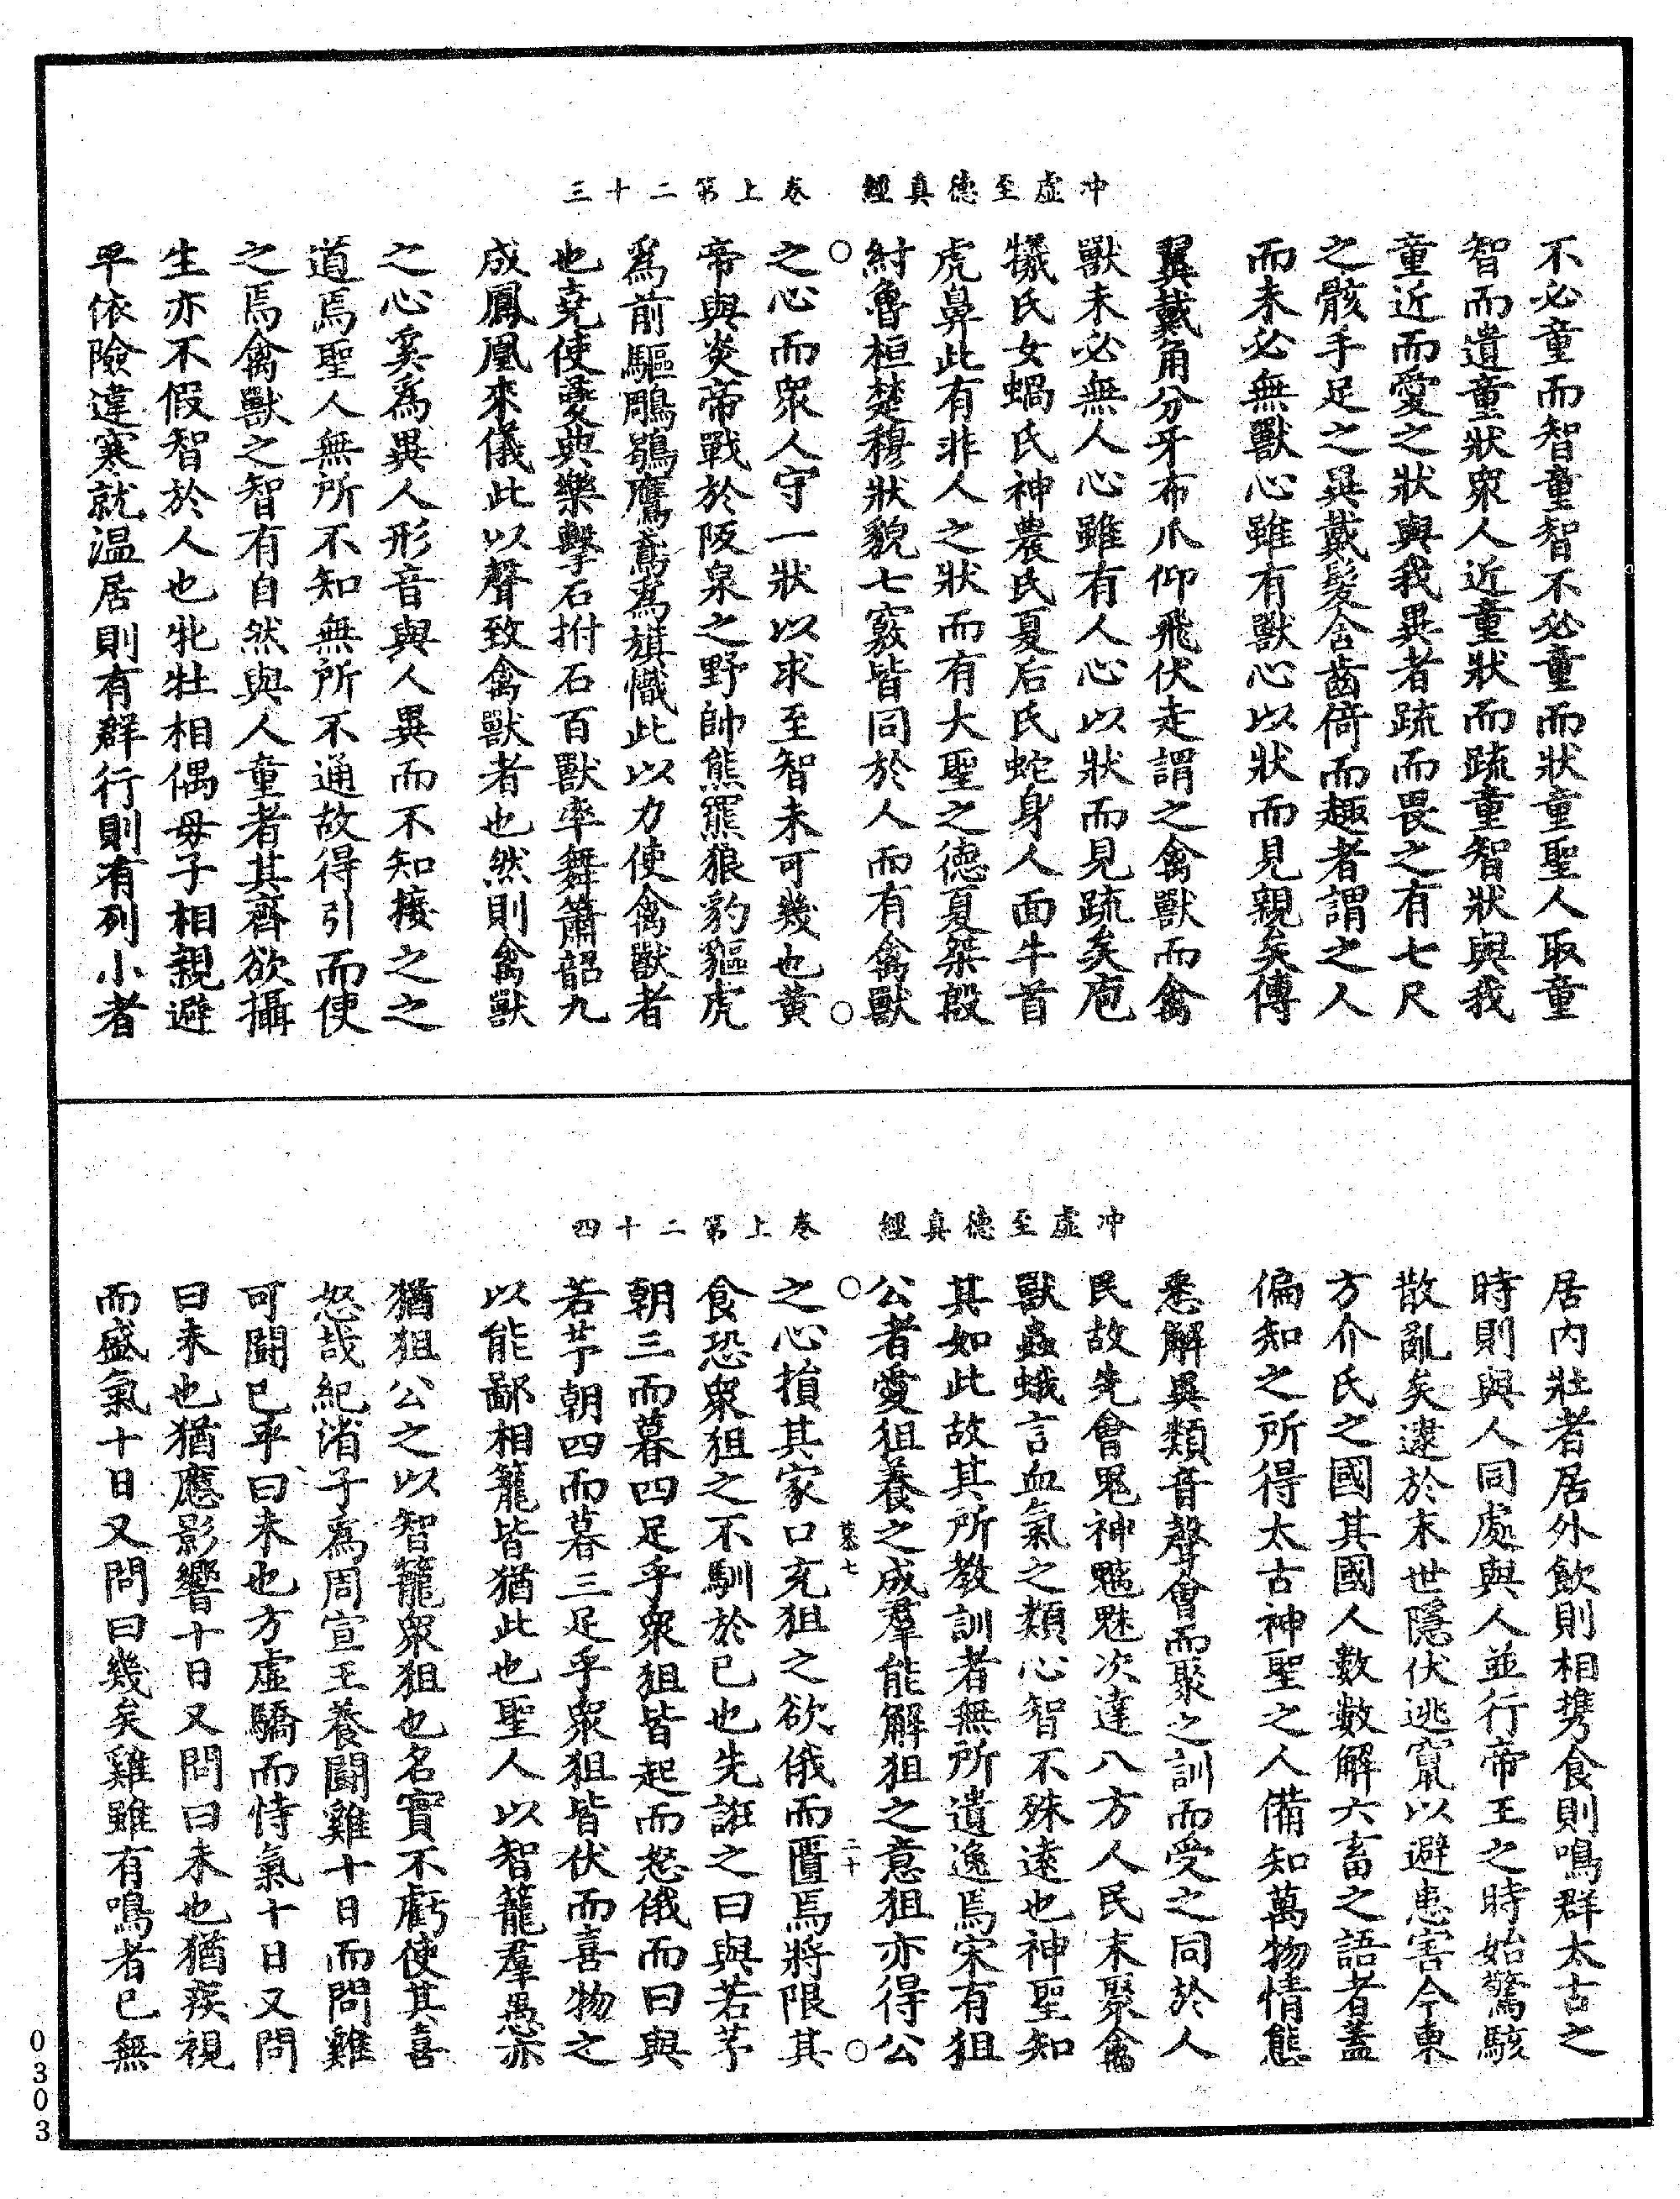 冲虛至德真經　卷上第二十三
不必童而智童智不必童而狀童聖人取童
智而遺童狀衆人近童狀而疏童智狀與我
童近而愛之狀與我異者疏而畏之有七尺
之骸手足之異戴髮含齒倚而趣者謂之人
而未必無獸心雖有獸心以狀而見親矣傳
翼戴角分牙布爪仰飛伏走謂之禽獸而禽
獸未必無人心雖有人心以狀而見疏矣庖
犧氏女蝸氏神農氏夏后氏蛇身人面牛首
虎鼻此有非人之狀而有大聖之德夏桀殷
紂魯桓楚穆狀貌七竅皆同於人而有禽獸
之心而衆人守一狀以求至智未可幾也黄
帝與炎帝戰於阪泉之野帥熊羆狼豹貙虎
爲前驅鵰鶡鷹鳶爲旗幟此以力使禽獸者
也堯使夔典樂擊石拊石百獸率舞簫韶九
成鳳凰來儀此以聲致禽獸者也然則禽獸
之心奚爲異人形音與人異而不知接之之
道焉聖人無所不知無所不通故得引而使
之焉禽獸之智有自然與人童者其齊欲攝
生亦不假智於人也牝牡相偶母子相親避
平依險違寒就温居則有群行則有列小者
冲虛至德真經　卷上第二十四
居內壯者居外飲則相携食則鳴群太古之
時則與人同處與人並行帝王之時始驚駭
散亂矣逮於末世隱伏逃竄以避患害今東
方介氏之國其國人數數解六畜之語者蓋
偏知之所得太古神聖之人備知萬物情態
悉解異類音聲會而聚之訓而受之同於人
民故先會鬼神魑魅次達八方人民末聚禽
獸蟲蛾言血氣之類心智不殊遠也神聖知
其如此故其所教訓者無所遺逸焉宋有狙
公者愛狙養之成羣能解狙之意狙亦得公
二十
之心損其家口充狙之欲俄而匱焉將限其
食恐衆狙之不馴於己也先誑之曰與若芧
朝三而暮四足乎衆狙皆起而怒俄而曰與
若芧朝四而暮三足乎衆狙皆伏而喜物之
以能鄙相籠皆猶此也聖人以智籠羣愚亦
猶狙公之以智籠衆狙也名實不虧使其喜
怒哉紀渻子爲周宣王養鬪雞十日而問雞
可鬪已乎曰未也方虛驕而恃氣十日又問
曰未也猶應影響十日又問曰未也猶疾視
而盛氣十日又問曰幾矣雞雖有鳴者已無
0303